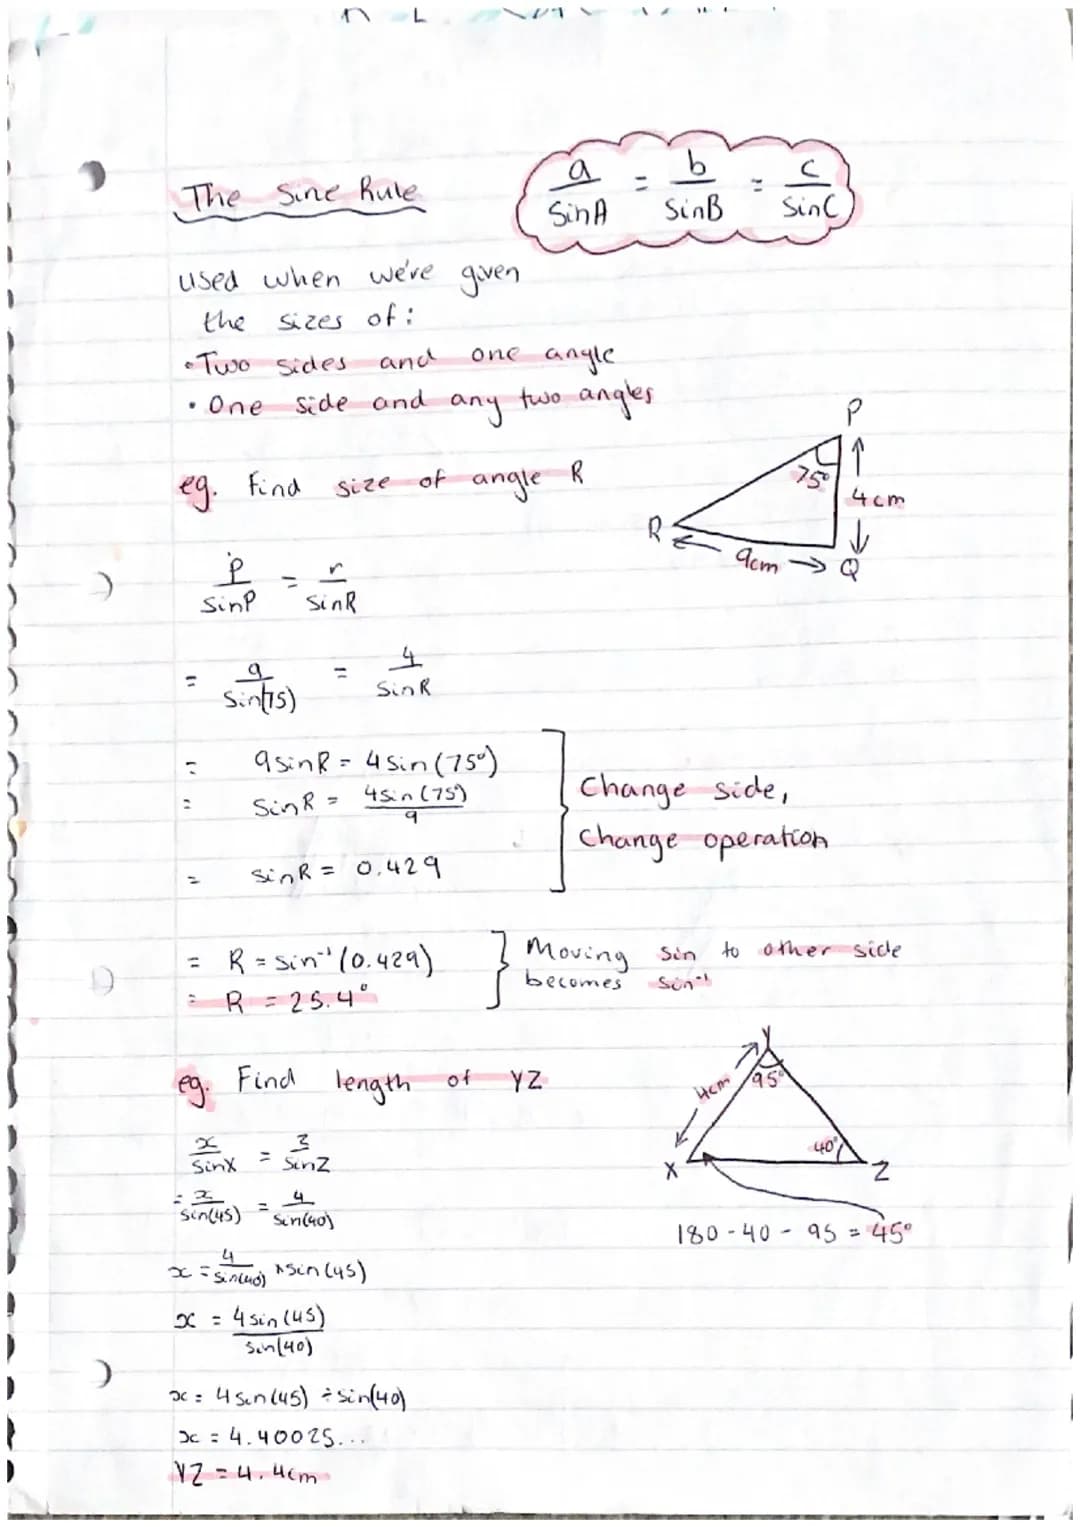 The Sine Rule
a/SinA = b/SinB = c/SinC
used when we're given
the sizes of:
• Two sides and one angle
• One side and any two angles
eg. Find size of angle R
P
75°
4cm
R
9cm
Q
p/SinP = r/SinR
= 9/Sin(75) = 4/SinR
= 9sinR = 4sin(75°)
= SinR = 4sin(75°)/9
= sinR = 0.429
Change side,
Change operation
= R = sin⁻¹(0.429)
= R = 25.4°
Moving sin to other side
becomes sin⁻¹
eg. Find length of YZ
Y
4cm
95°
40°
X
Z
180 - 40 - 95 = 45°
x/sinX = z/sinZ
= x/sin(45) = 4/sin(40)
x = 4/sin(40) × sin(45)
x = 4sin(45)/sin(40)
x = 4sin(45) ÷ sin(40)
x = 4.40025...
YZ = 4.4cm